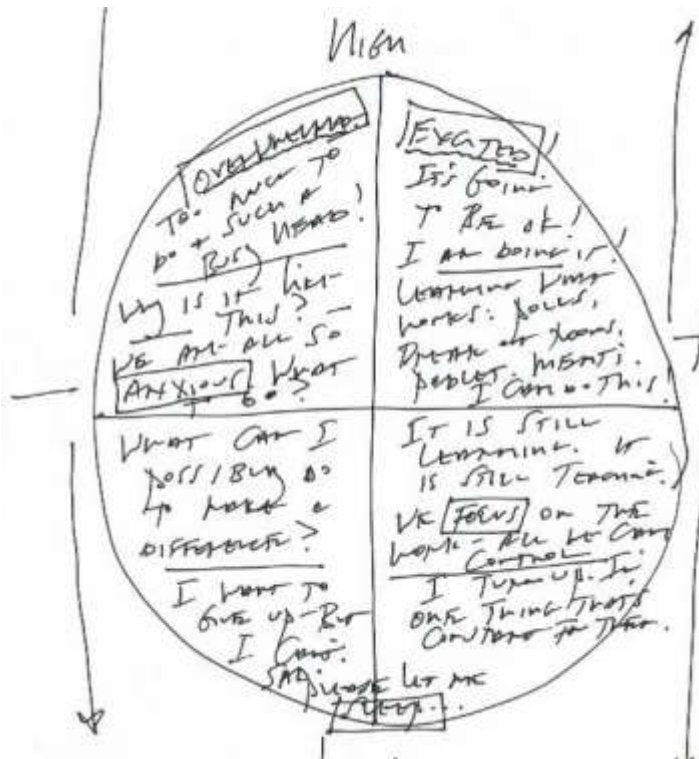 HIGH
OVERWHELMED!
TOO MUCH TO
DO & SUCH A
BUSY HEAD!
WHY IS IT LIKE
THIS? -
WE ARE ALL SO
ANXIOUS WHAT
TO DO?
EXCITED!
IT'S GOING
TO BE OK!
I AM DOING IT!
LEARNING WHAT
WORKS: POLLS,
BREAK OUT ROOMS,
PADLET, MENTI.
I CAN DO THIS!
WHAT CAN I
POSSIBLY DO
TO MAKE A
DIFFERENCE?
I WANT TO
GIVE UP - BUT
I CAN'T.
SAD.
PLEASE LET ME
SLEEP...
IT IS STILL
LEARNING. IT
IS STILL TEACHING.
WE FOCUS ON THE
WORK - ALL WE CAN
CONTROL
I TURN UP. IN
ONE THING THAT'S
CONSTANT